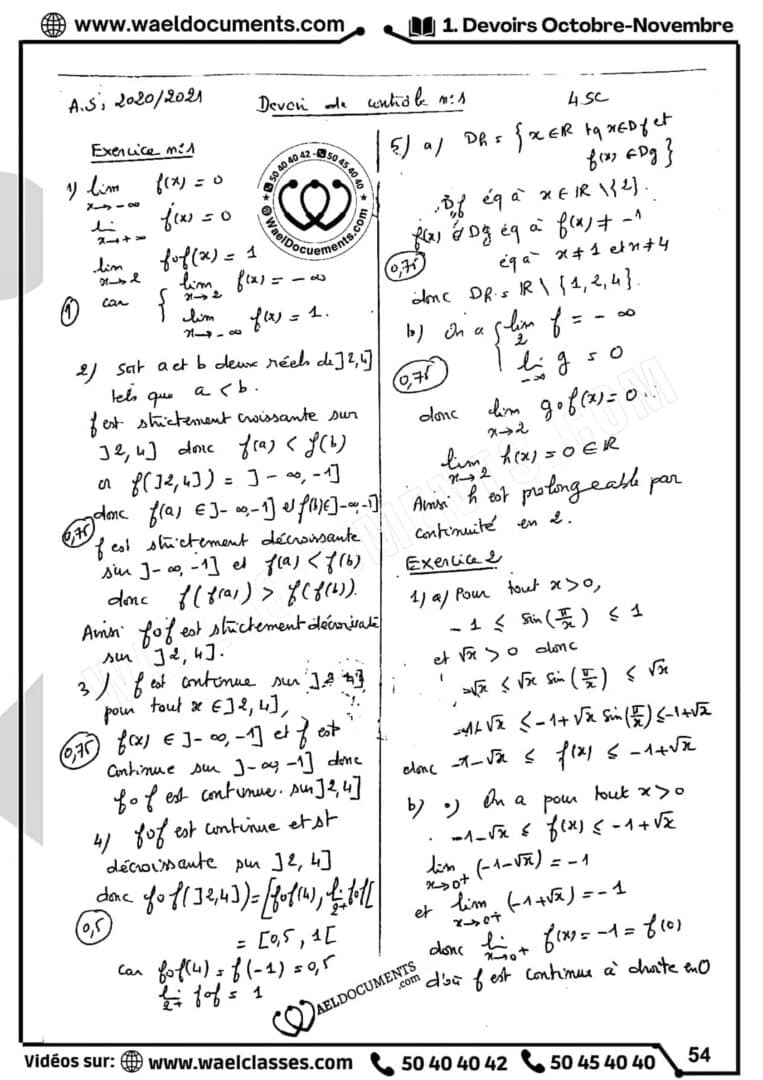 www.waeldocuments.com
1. Devoirs Octobre-Novembre
A.S, 2020/2021
Devoir de contrôle n:1
4.SC
Exercice n:1
1) lim x→-∞ f(x) = 0
li x→+∞ f(x) = 0
lim x→2 fof(x) = 1
car { lim x→2 f(x) = -∞
lim x→-∞ f(x) = 1.
1
2) Soit a et b deux réels de ]2,4]
tels que a < b.
f est strictement croissante sur
]2,4] donc f(a) < f(b)
or f(]2,4]) = ]-∞,-1]
donc f(a) ∈ ]-∞,-1] et f(b) ∈ ]-∞,-1]
0,75
f est strictement décroissante
sur ]-∞,-1] et f(a) < f(b)
donc f(f(a)) > f(f(b)).
Ainsi fof est strictement décroissante
sur ]2,4].
3) f est continue sur ]2,4]
pour tout x ∈ ]2,4],
0,75
f(x) ∈ ]-∞,-1] et f est
continue sur ]-∞,-1] donc
fof est continue sur ]2,4]
4) fof est continue et st
décroissante sur ]2,4]
donc fof(]2,4]) = [fof(4), li 2+ fof[
0,5
= [0,5, 1[
car fof(4) = f(-1) = 0,5
li 2+ fof = 1
5) a) Dh = {x∈IR tq x∈Df et
f(x) ∈Dg}
Df éq à x ∈ IR \{2}.
f(x) ∈ Dg éq à f(x) ≠ -1
0,75
éq à x ≠ 1 et x ≠ 4
donc Dh = IR \ {1,2,4}.
b) On a { lim 2 f = -∞
li -∞ g = 0
0,75
donc lim x→2 gof(x) = 0
lim x→2 h(x) = 0 ∈ IR
Ainsi h est prolongeable par
continuité en 2.
Exercice 2
1) a) Pour tout x>0,
-1 ≤ sin(π/x) ≤ 1
et √x > 0 donc
-√x ≤ √x sin(π/x) ≤ √x
-1-√x ≤ -1+√x sin(π/x) ≤ -1+√x
donc -1-√x ≤ f(x) ≤ -1+√x
b) •) On a pour tout x>0
-1-√x ≤ f(x) ≤ -1+√x
lim x→0+ (-1-√x) = -1
et lim x→0+ (-1+√x) = -1
donc li x→0+ f(x) = -1 = f(0)
d'où f est continue à droite en 0
50 40 40 42 - 50 45 40 40
WaelDocuements.com
WAELDOCUMENTS
.com
Vidéos sur: www.waelclasses.com 50 40 40 42 50 45 40 40
54